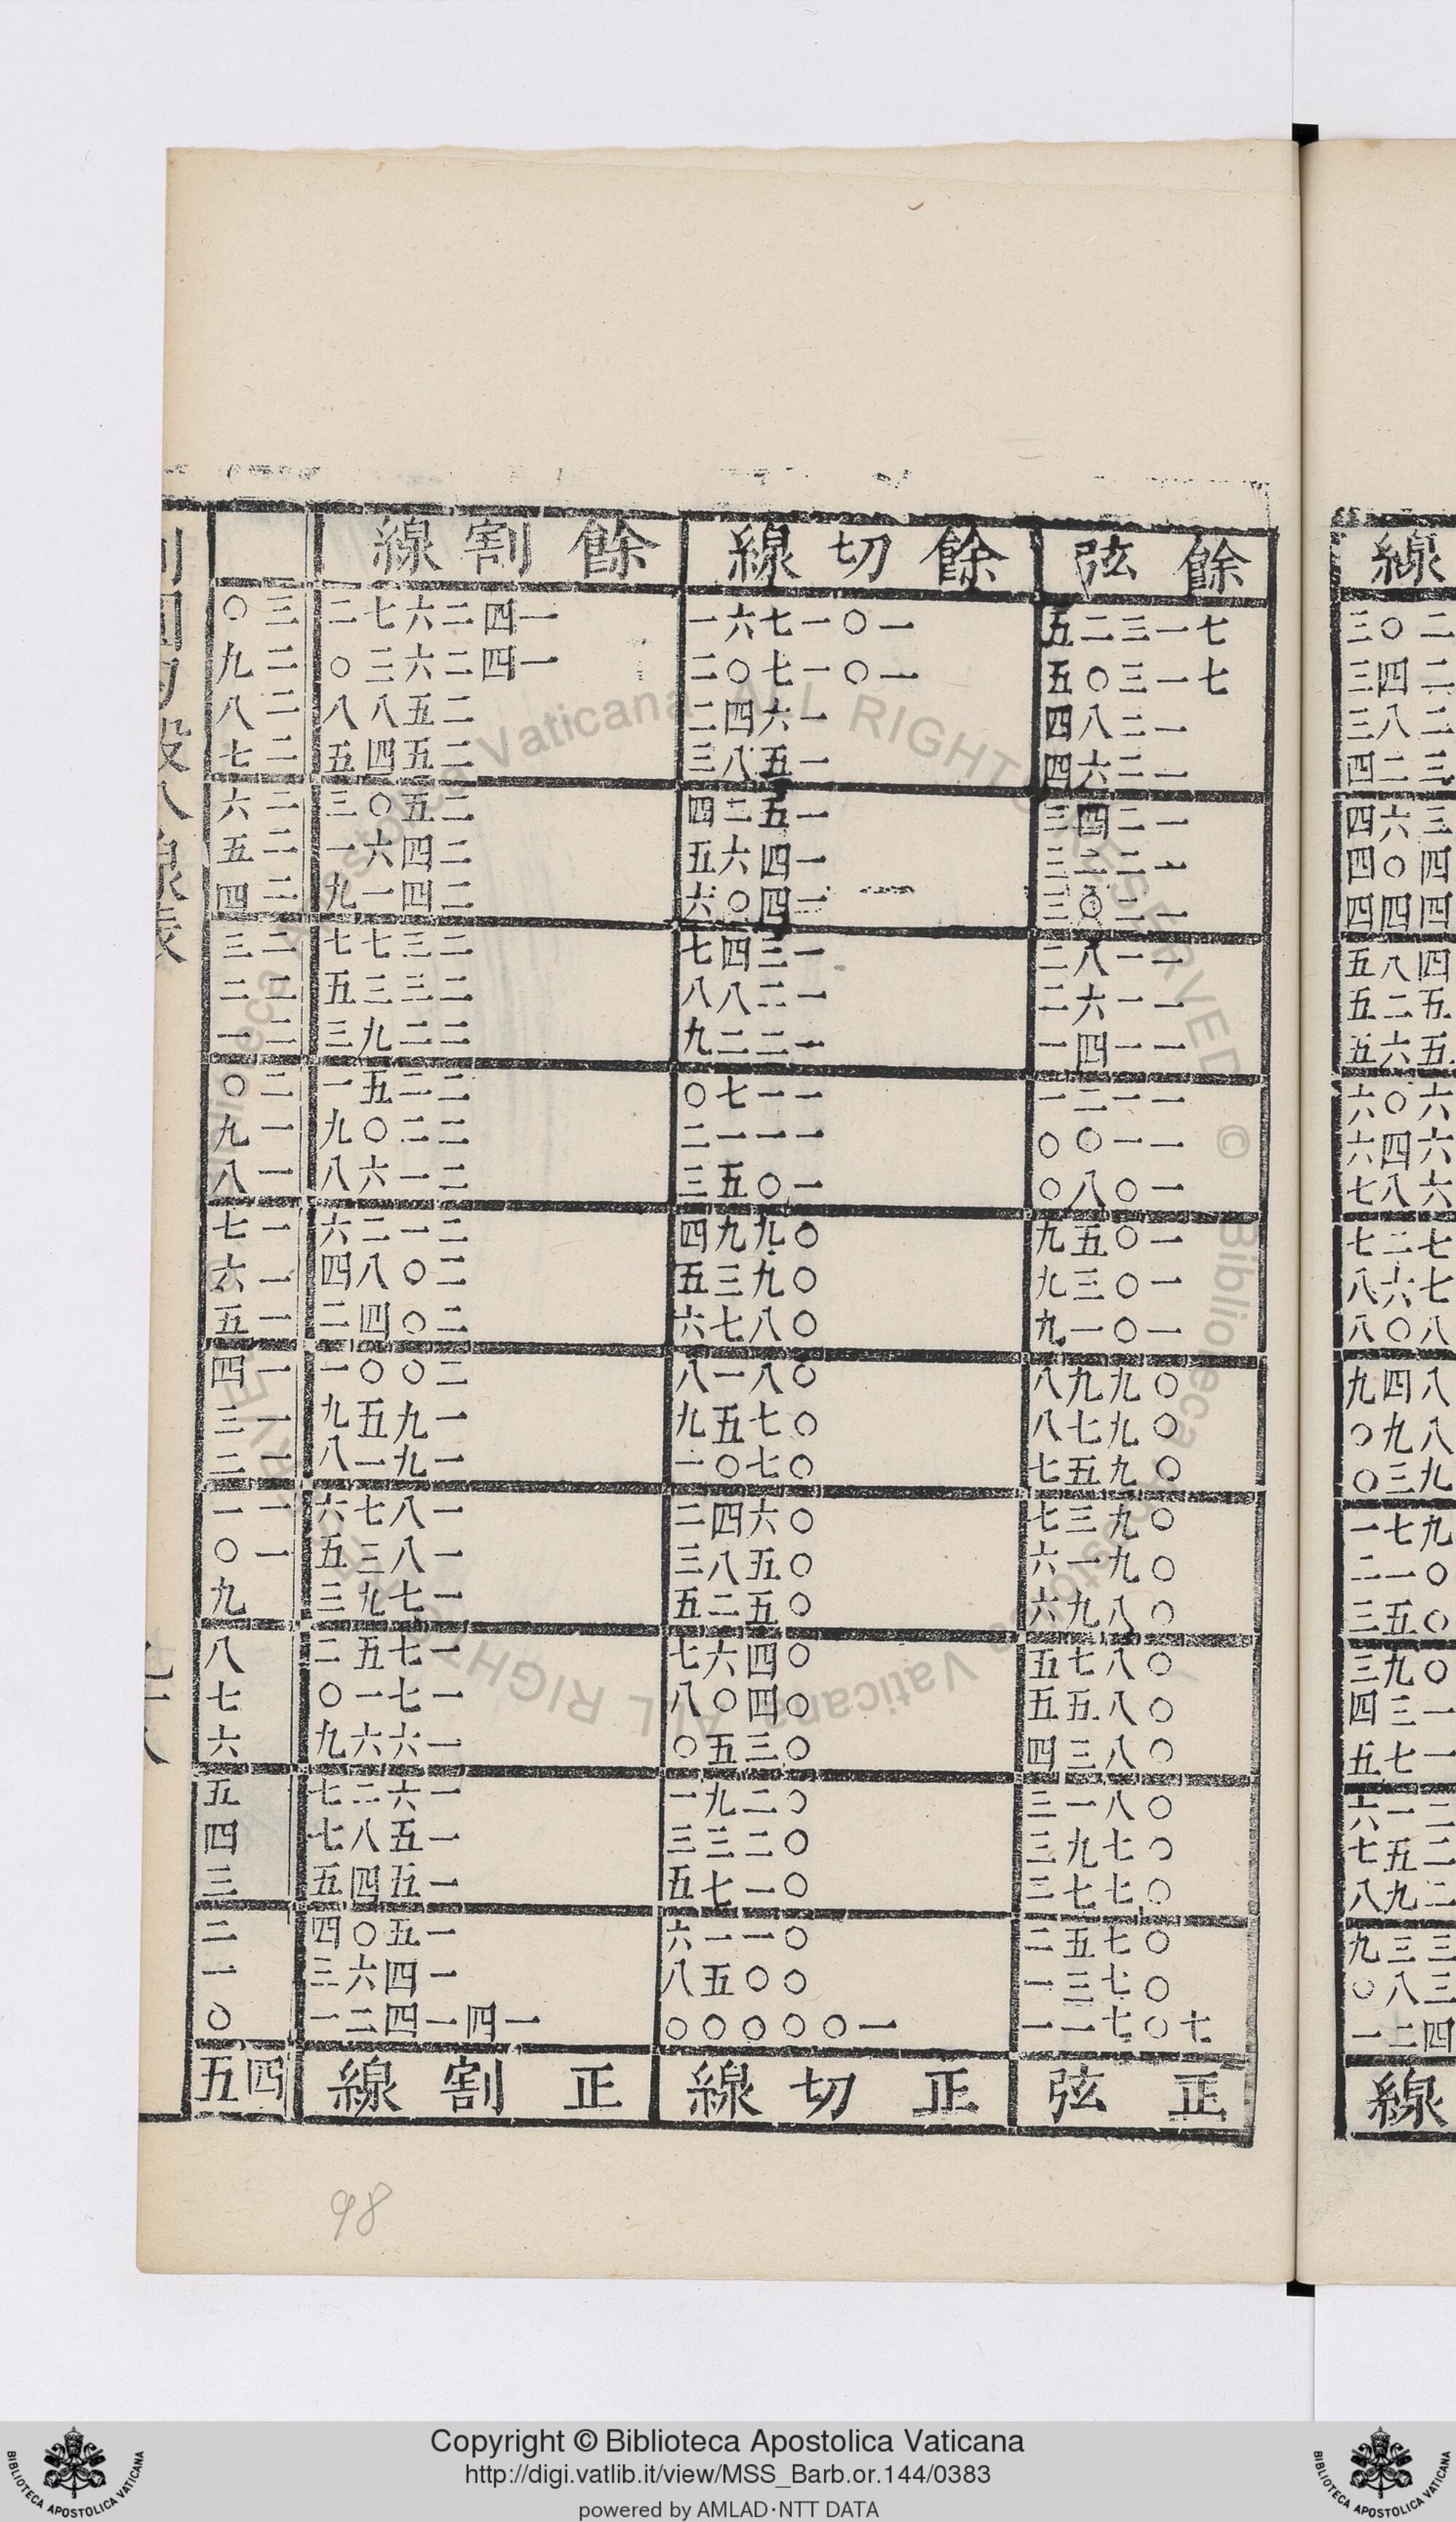 線
二〇三
二四三
二八三
三二四
三六四
四〇四
四四四
四八五
五二五
五六五
六〇六
六四六
六八七
七二七
七六八
八〇八
八四九
八九〇
九三〇
九七一
〇一二
〇五三
〇九三
一三四
一七五
二一六
二五七
二九八
三三九
三八〇
四二一
線
餘弦 餘切線 餘割線
七一三二五 一〇一七六一 一四二六七二 三〇
七一三〇五 一〇一七〇二 一四二六三〇 二九
一二八四 一六四二 二五八八 二八
一二六四 一五八三 二五四五 二七
一二四三 一五二四 二五〇三 二六
一二二三 一四六五 二四六一 二五
一二〇三 一四〇六 二四一九 二四
一一八二 一三四七 二三七七 二三
一一六二 一二八八 二三三五 二二
一一四一 一二二九 二二九三 二一
一一二一 一一七〇 二二五一 二〇
一一〇〇 一一一二 二二〇九 一九
一〇八〇 一〇五三 二一六八 一八
一〇五九 〇九九四 二一二六 一七
一〇三九 〇九三五 二〇八四 一六
一〇一九 〇八七六 二〇四二 一五
〇九九八 〇八一八 二〇〇一 一四
〇九七八 〇七五九 一九五九 一三
〇九五七 〇七〇一 一九一八 一二
〇九三七 〇六四二 一八七六 一一
〇九一六 〇五八三 一八三五 一〇
〇八九六 〇五二五 一七九三 九
〇八七五 〇四六七 一七五二 八
〇八五五 〇四〇八 一七一〇 七
〇八三四 〇三五〇 一六六九 六
〇八一三 〇二九一 一六二七 五
〇七九三 〇二三三 一五八七 四
〇七七二 〇一七五 一五四五 三
〇七五二 〇一一六 一五〇四 二
〇七三一 〇〇五八 一四六三 一
七〇七一一 一〇〇〇〇〇 一四一四二一 〇
正弦 正切線 正割線 四五
98
Copyright © Biblioteca Apostolica Vaticana
http://digi.vatlib.it/view/MSS_Barb.or.144/0383
powered by AMLAD·NTT DATA
BIBLIOTECA APOSTOLICA VATICANA
BIBLIOTECA APOSTOLICA VATICANA